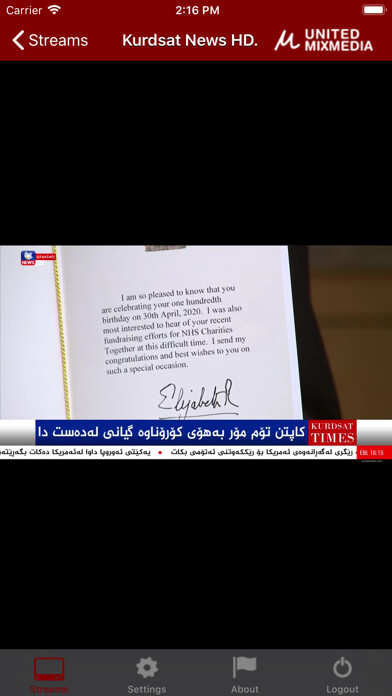 Carrier 2:16 PM
Streams Kurdsat News HD. UNITED
MIXMEDIA
NEWS
I am so pleased to know that you
are celebrating your one hundredth
birthday on 30th April, 2020. I was also
most interested to hear of your recent
fundraising efforts for NHS Charities
Together at this difficult time. I send my
congratulations and best wishes to you on
such a special occasion.
Elizabeth R
کاپتن تۆم مۆر بەهۆی کۆرۆناوە گیانی لەدەست دا
KURDSAT
TIMES
رێگری لەگەڕانەوەی ئەمریکا بۆ رێککەوتنی ئەتۆمی بکات • یەکێتی ئەوروپا داوا لەئەمریکا دەکات بگەڕێتەو
EBL 18:15
Streams Settings About Logout